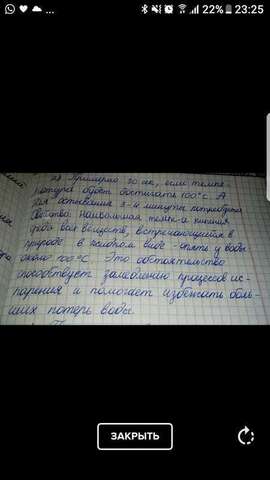 22% 23:25
2) Примерно 20 сек, если темпе-
ратура будет достигать 100°С. А
для остывания 3-4 минуты потребуется
Свойства: Наибольшая темп-а кипения
среди всех веществ, встречающихся в
природе в жидком виде - опять у воды
около 100°С. Это обстоятельство
способствует замедлению процессов ис-
парения и помогает избежать боль-
ших потерь воды.
ЗАКРЫТЬ